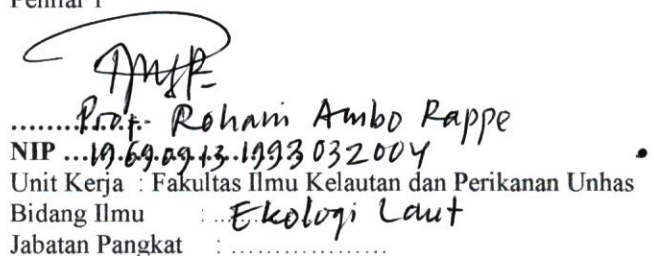 Penilai 1
........Prof. Rohani Ambo Rappe
NIP ...19.69.09.13.1993 032004
Unit Kerja : Fakultas Ilmu Kelautan dan Perikanan Unhas
Bidang Ilmu : ...Ekologi Laut
Jabatan Pangkat : ..................